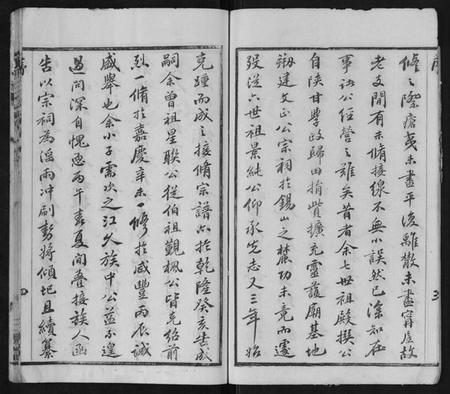 脩之際瘡夷未盡平復離散未盡寗居故
老支間有未脩接線不無小誤然已深知在
事諸公經營之難矣昔者余七世祖殿撰公
自陝甘學政歸田捐貲擴充靈護廟基地
剏建文正公宗祠於錫山之麓功未竟而遽
歿從六世祖景純公仰承先志又三年始
克踵而成之接脩宗譜亦於乾隆癸亥告成
嗣余曾祖星聯公從伯祖觀楓公皆克紹前
烈一脩於嘉慶辛未一修於咸豐丙辰誠
盛舉也余小子需次之江久族中公益不遑
過問深自愧恧丙午春夏間疊接族人函
告以宗祠為淫雨沖刷勢將傾圮且續纂